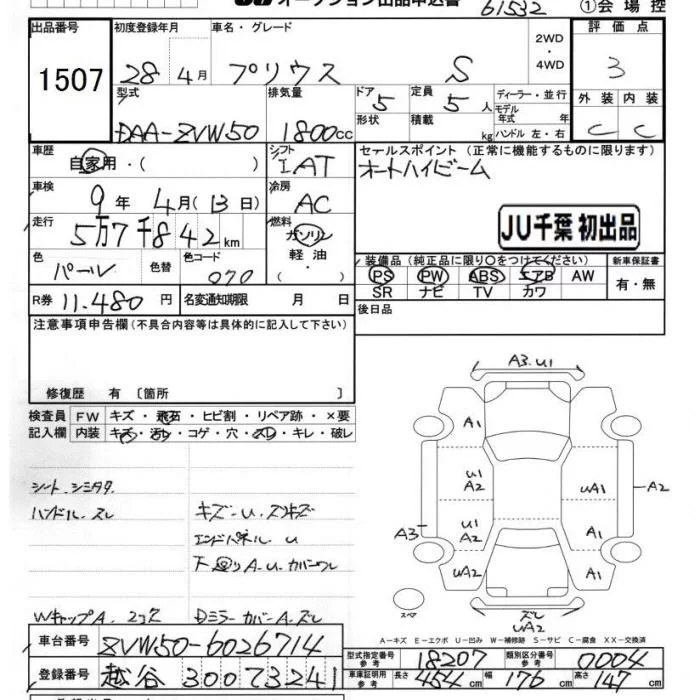 オークション出品申込書 61532 ①会場控
出品番号 初度登録年月 車名・グレード 2WD ・4WD 評価点
1507 28年4月 プリウス S 3
型式 排気量 ドア 定員 ディーラー・並行 外装 内装
DAA-ZVW50 1800cc 5 5人 モデル年式 年 C C
形状 積載 kg ハンドル 左・右
車歴 自家用・( ) シフト IAT セールスポイント (正常に機能するものに限ります)
オートハイビーム
車検 9年4月(13日) 冷房 AC
走行 5万7千842km 燃料 ガソリン 軽油・( )
JU千葉 初出品
色 パール 色替 色コード 070
装備品 (純正品に限り○をつけてください) 新車保証書
PS PW ABS エアB AW 有・無
SR ナビ TV カワ
R券 11.480円 名変通知期限 月 日 後日品
注意事項申告欄 (不具合内容等は具体的に記入して下さい)
修復歴 有 〔箇所 〕
検査員記入欄 FW キズ・飛石・ヒビ割・リペア跡・×要
内装 キズ・汚レ・コゲ・穴・スレ・キレ・破レ
シート、シミ
ハンドル、スレ
キズ・U・
エンドパネル U
下廻りA.U.カバーワレ
Wキャップ A、2コ Dミラーカバー A.ズレ
A3.U1
A1
U1
A2 UA1 A2
U1
A3 A2 A1
UA2 A1
スペア ズレ
UA2
A-キズ E-エクボ U-凹み W-補修跡 S-サビ C-腐食 XX-交換済
車台番号 ZVW50-6026714
型式指定番号 参考 18207 類別区分番号 参考 0004
登録番号 越谷 300 ワ3241
車庫証明用 参考 長さ 454cm 幅 176cm 高さ 147cm